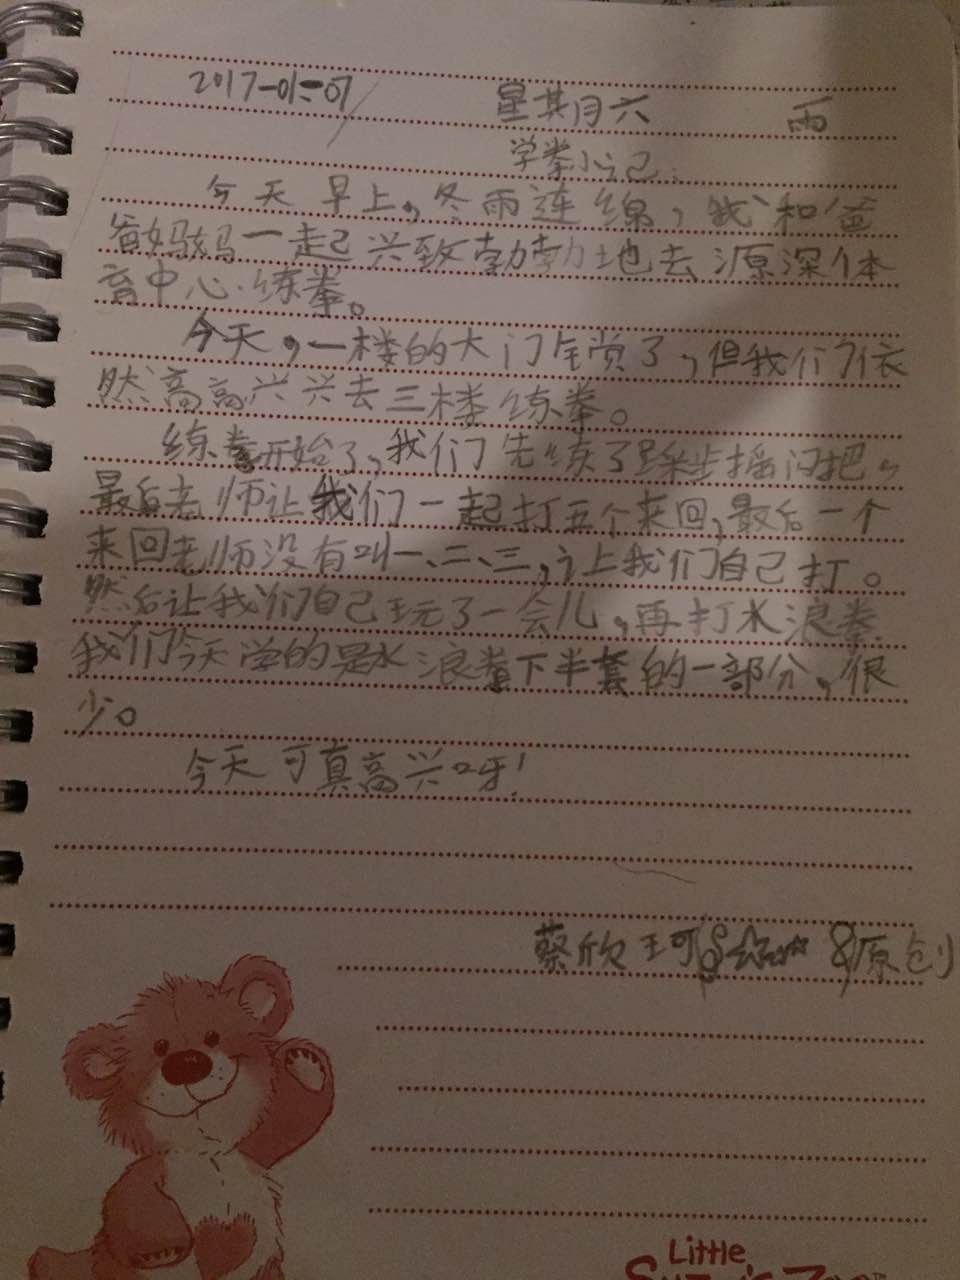 2017-01-07 星期六 雨
学拳小记:
今天早上,冬雨连绵,我和爸
爸妈妈一起兴致勃勃地去源深体
育中心练拳。
今天,一楼的大门锁了,但我们依
然高高兴兴去三楼练拳。
练拳开始了,我们先练了踩步摇闪把,
最后老师让我们一起打五个来回,最后一个
来回老师没有叫一、二、三,让我们自己打。
然后让我们自己玩了一会儿,再打水浪拳
我们今天学的是水浪拳下半套的一部分,很
少。
今天可真高兴呀!
蔡欣珂 原创
Little